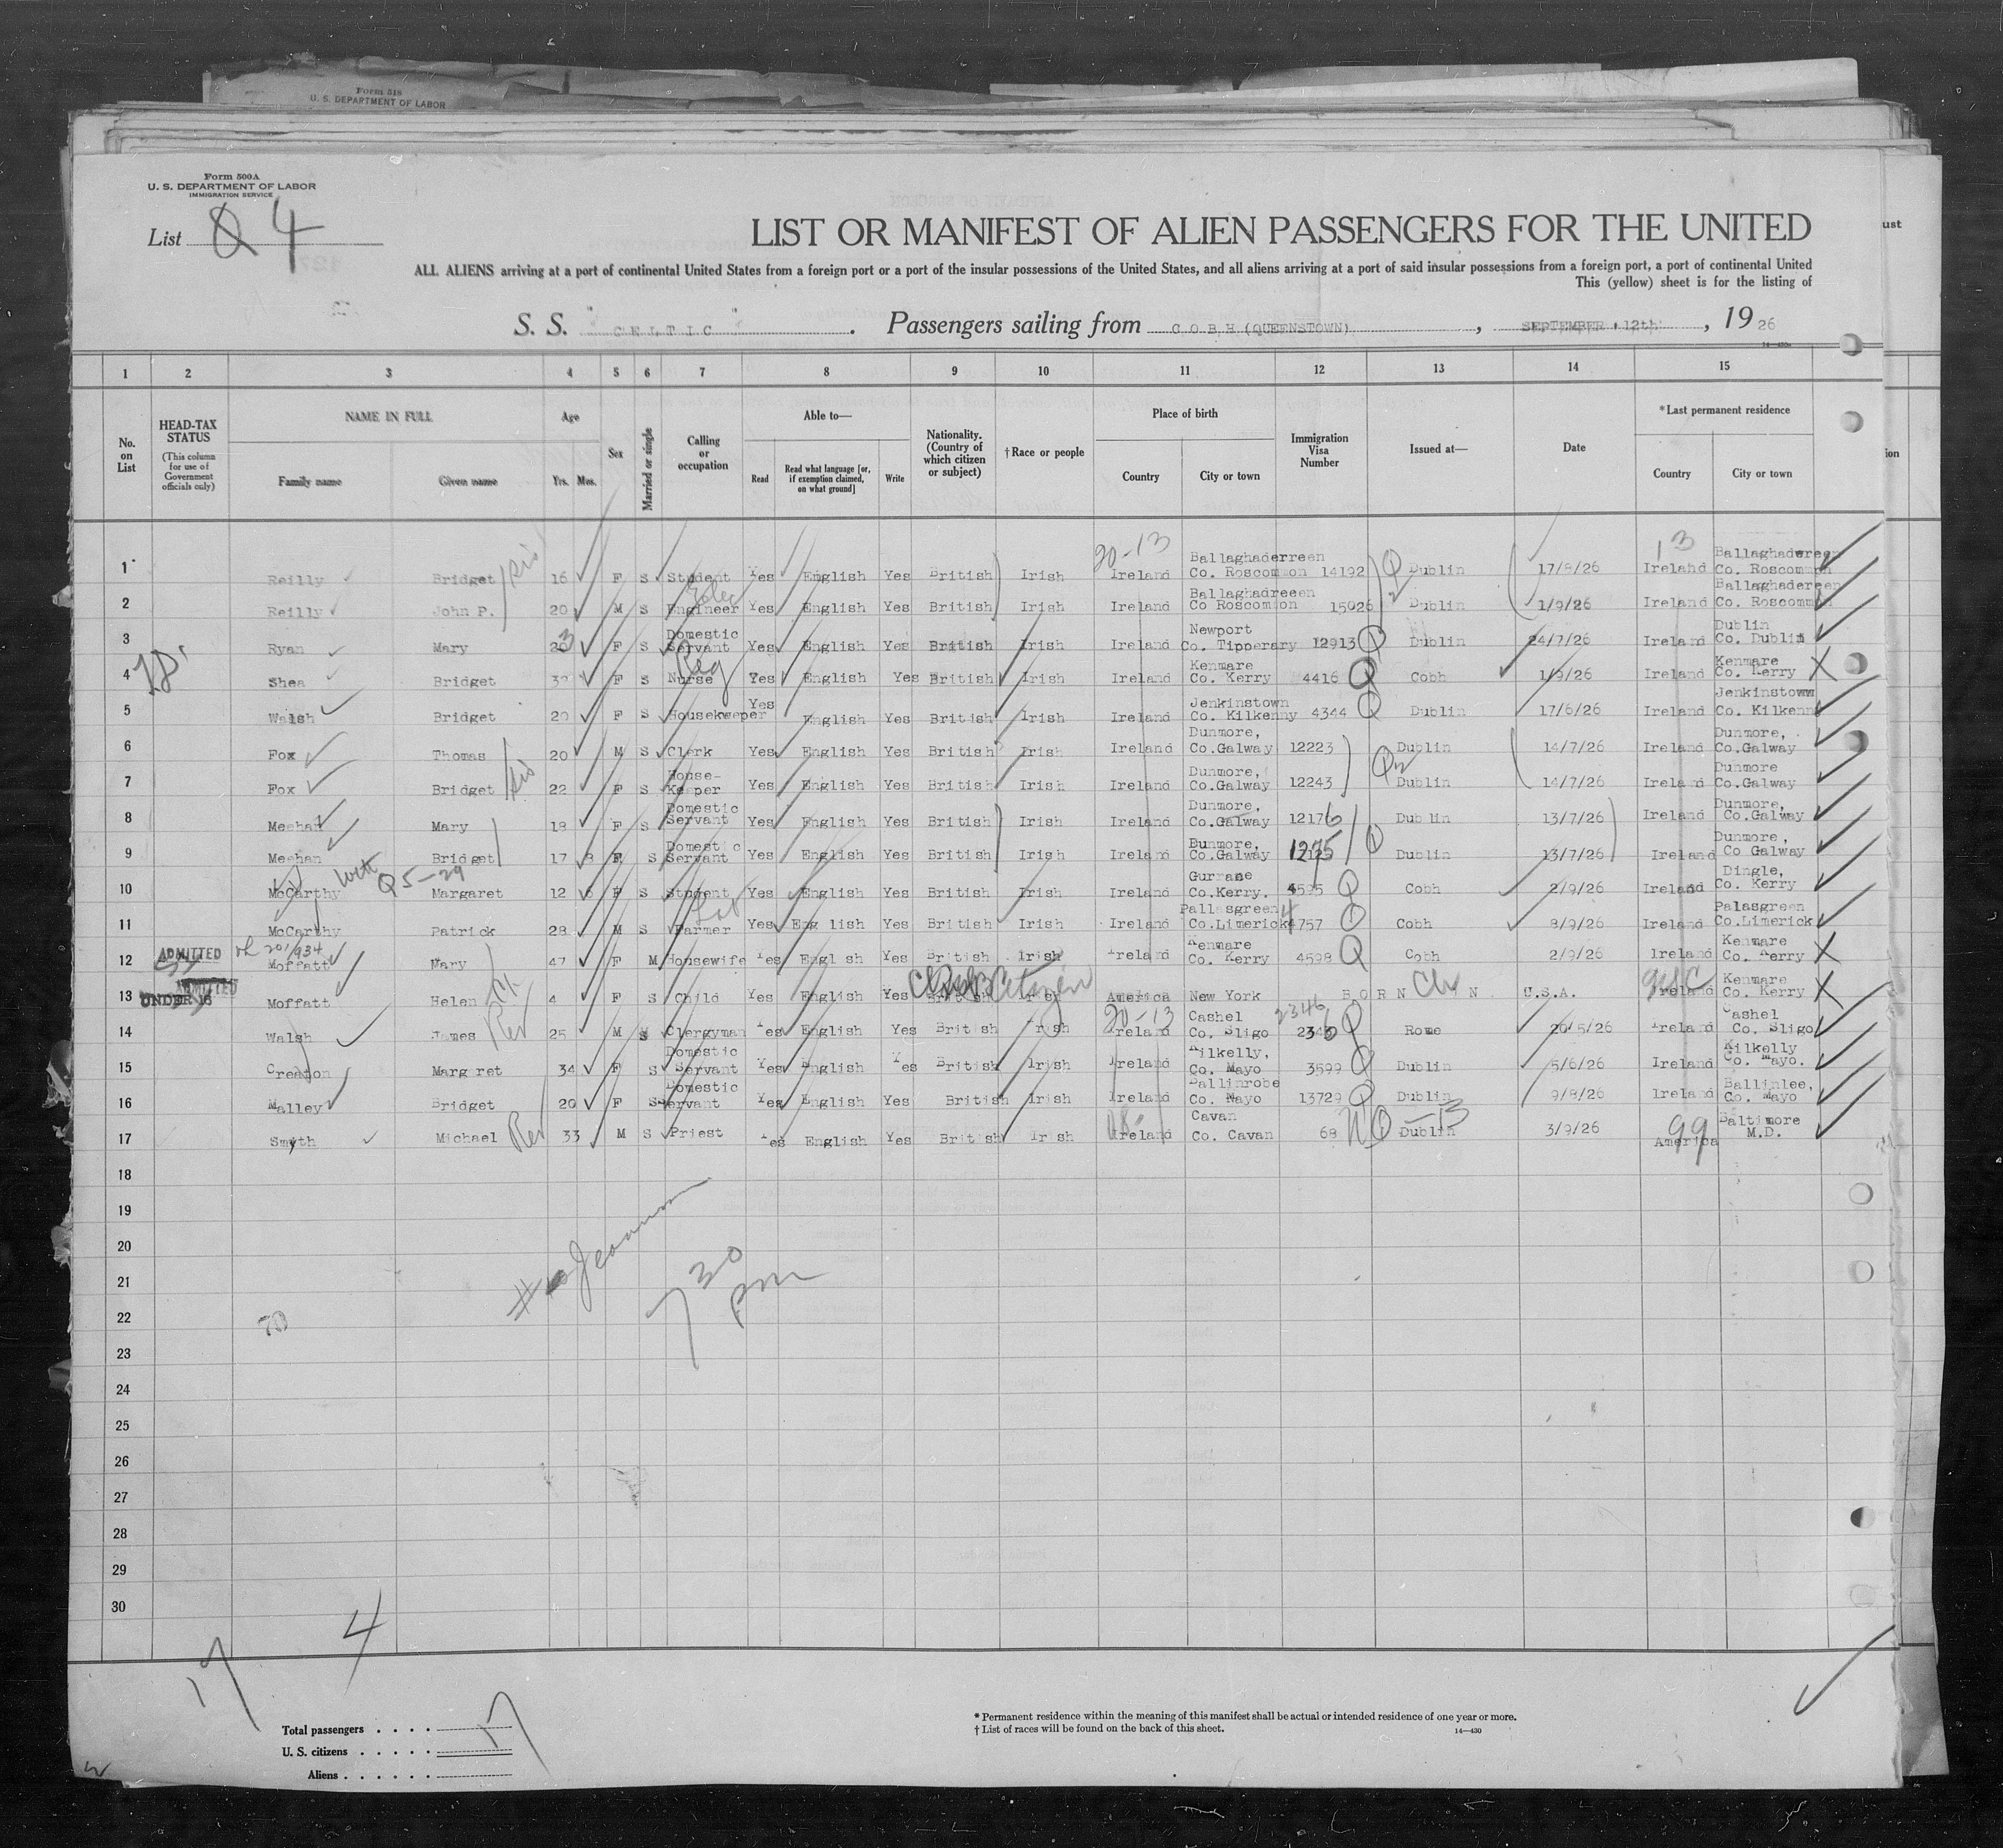 Form 518
U. S. DEPARTMENT OF LABOR
Form 500A
U. S. DEPARTMENT OF LABOR
IMMIGRATION SERVICE
List 4
LIST OR MANIFEST OF ALIEN PASSENGERS FOR THE UNITED
ALL ALIENS arriving at a port of continental United States from a foreign port or a port of the insular possessions of the United States, and all aliens arriving at a port of said insular possessions from a foreign port, a port of continental United
This (yellow) sheet is for the listing of
S. S. "CELTIC". Passengers sailing from COBH (QUEENSTOWN), SEPTEMBER 12th, 1926
14-430
1 2 3 4 5 6 7 8 9 10 11 12 13 14 15
No. on List
HEAD-TAX STATUS (This column for use of Government officials only)
NAME IN FULL Family name Given name
Age Yrs. Mos.
Sex
Married or single
Calling or occupation
Able to— Read Read what language [or, if exemption claimed, on what ground] Write
Nationality. (Country of which citizen or subject)
†Race or people
Place of birth Country City or town
Immigration Visa Number
Issued at—
Date
*Last permanent residence Country City or town
1 Reilly Bridget sis 16 F S Student Yes English Yes British Irish 20-13 Ireland Ballaghaderreen Co. Roscommon 14192 Q Dublin 17/8/26 13 Ireland Ballaghadereen Co. Roscommon
2 Reilly John P. 20 M S Elec Engineer Yes English Yes British Irish Ireland Ballaghadreeen Co Roscommon 15026 2 Dublin 1/9/26 Ireland Ballaghadereen Co. Roscommon
3 Ryan Mary 23 F S Domestic Servant Yes English Yes British Irish Ireland Newport Co. Tipperary 12913 Q Dublin 24/7/26 Ireland Dublin Co. Dublin
4 Shea Bridget 32 F S Reg Nurse Yes English Yes British Irish Ireland Kenmare Co. Kerry 4416 Q Cobh 1/9/26 Ireland Kenmare Co. Kerry X
5 Walsh Bridget 20 F S Housekeeper Yes English Yes British Irish Ireland Jenkinstown Co. Kilkenny 4344 Q Dublin 17/6/26 Ireland Jenkinstown Co. Kilkenny
6 Fox Thomas 20 M S Clerk Yes English Yes British Irish Ireland Dunmore, Co.Galway 12223 Dublin 14/7/26 Ireland Dunmore, Co.Galway
7 Fox Bridget sis 22 F S House-Keeper Yes English Yes British Irish Ireland Dunmore, Co.Galway 12243 Q2 Dublin 14/7/26 Ireland Dunmore Co.Galway
8 Meehan Mary 18 F S Domestic Servant Yes English Yes British Irish Ireland Dunmore, Co.Galway 12176 Dublin 13/7/26 Ireland Dunmore, Co.Galway
9 Meehan Bridget 17 8 F S Domestic Servant Yes English Yes British Irish Ireland Dunmore, Co.Galway Q Dublin 13/7/26 Ireland Dunmore, Co Galway
10 McCarthy with Q5-29 Margaret 12 6 F S Student Yes English Yes British Irish Ireland Gurrane Co.Kerry. 4595 Q Cobh 2/9/26 Ireland Dingle, Co. Kerry
11 McCarthy Patrick 28 M S Farmer Yes English Yes British Irish Ireland Pallasgreen Co.Limerick 4757 Q Cobh 8/9/26 Ireland Palasgreen Co.Limerick
12 ADMITTED Moffatt Mary 47 F M Housewife Yes English Yes British Irish Ireland Kenmare Co. Kerry 4598 Q Cobh 2/9/26 Ireland Kenmare Co. Kerry X
13 ADMITTED UNDER 16 Moffatt Helen 4 F S Child Yes English Yes British Citizen Irish America New York BORN IN U.S.A. USC Ireland Kenmare Co. Kerry X
14 Walsh James Rev 25 M S Clergyman Yes English Yes British Irish 20-13 Ireland Cashel Co. Sligo 2346 Q Rome 20/5/26 Ireland Cashel Co. Sligo
15 Creaton Margaret 34 F S Domestic Servant Yes English Yes British Irish Ireland Kilkelly, Co. Mayo 3599 Q Dublin 5/6/26 Ireland Kilkelly Co. Mayo.
16 Malley Bridget 20 F S Domestic Servant Yes English Yes British Irish Ireland Ballinrobe Co. Mayo 13729 Q Dublin 9/8/26 Ireland Ballinlee, Co. Mayo
17 Smyth Michael Rev 33 M S Priest Yes English Yes British Irish Ireland Cavan Co. Cavan 68 NQ-13 Dublin 3/9/26 99 America Baltimore M.D.
18
19
20
21
22 70
7 30 pm
23
24
25
26
27
28
29
30
17 4
Total passengers . . . . 17
U. S. citizens . . . . .
Aliens . . . . . .
* Permanent residence within the meaning of this manifest shall be actual or intended residence of one year or more.
† List of races will be found on the back of this sheet. 14—430